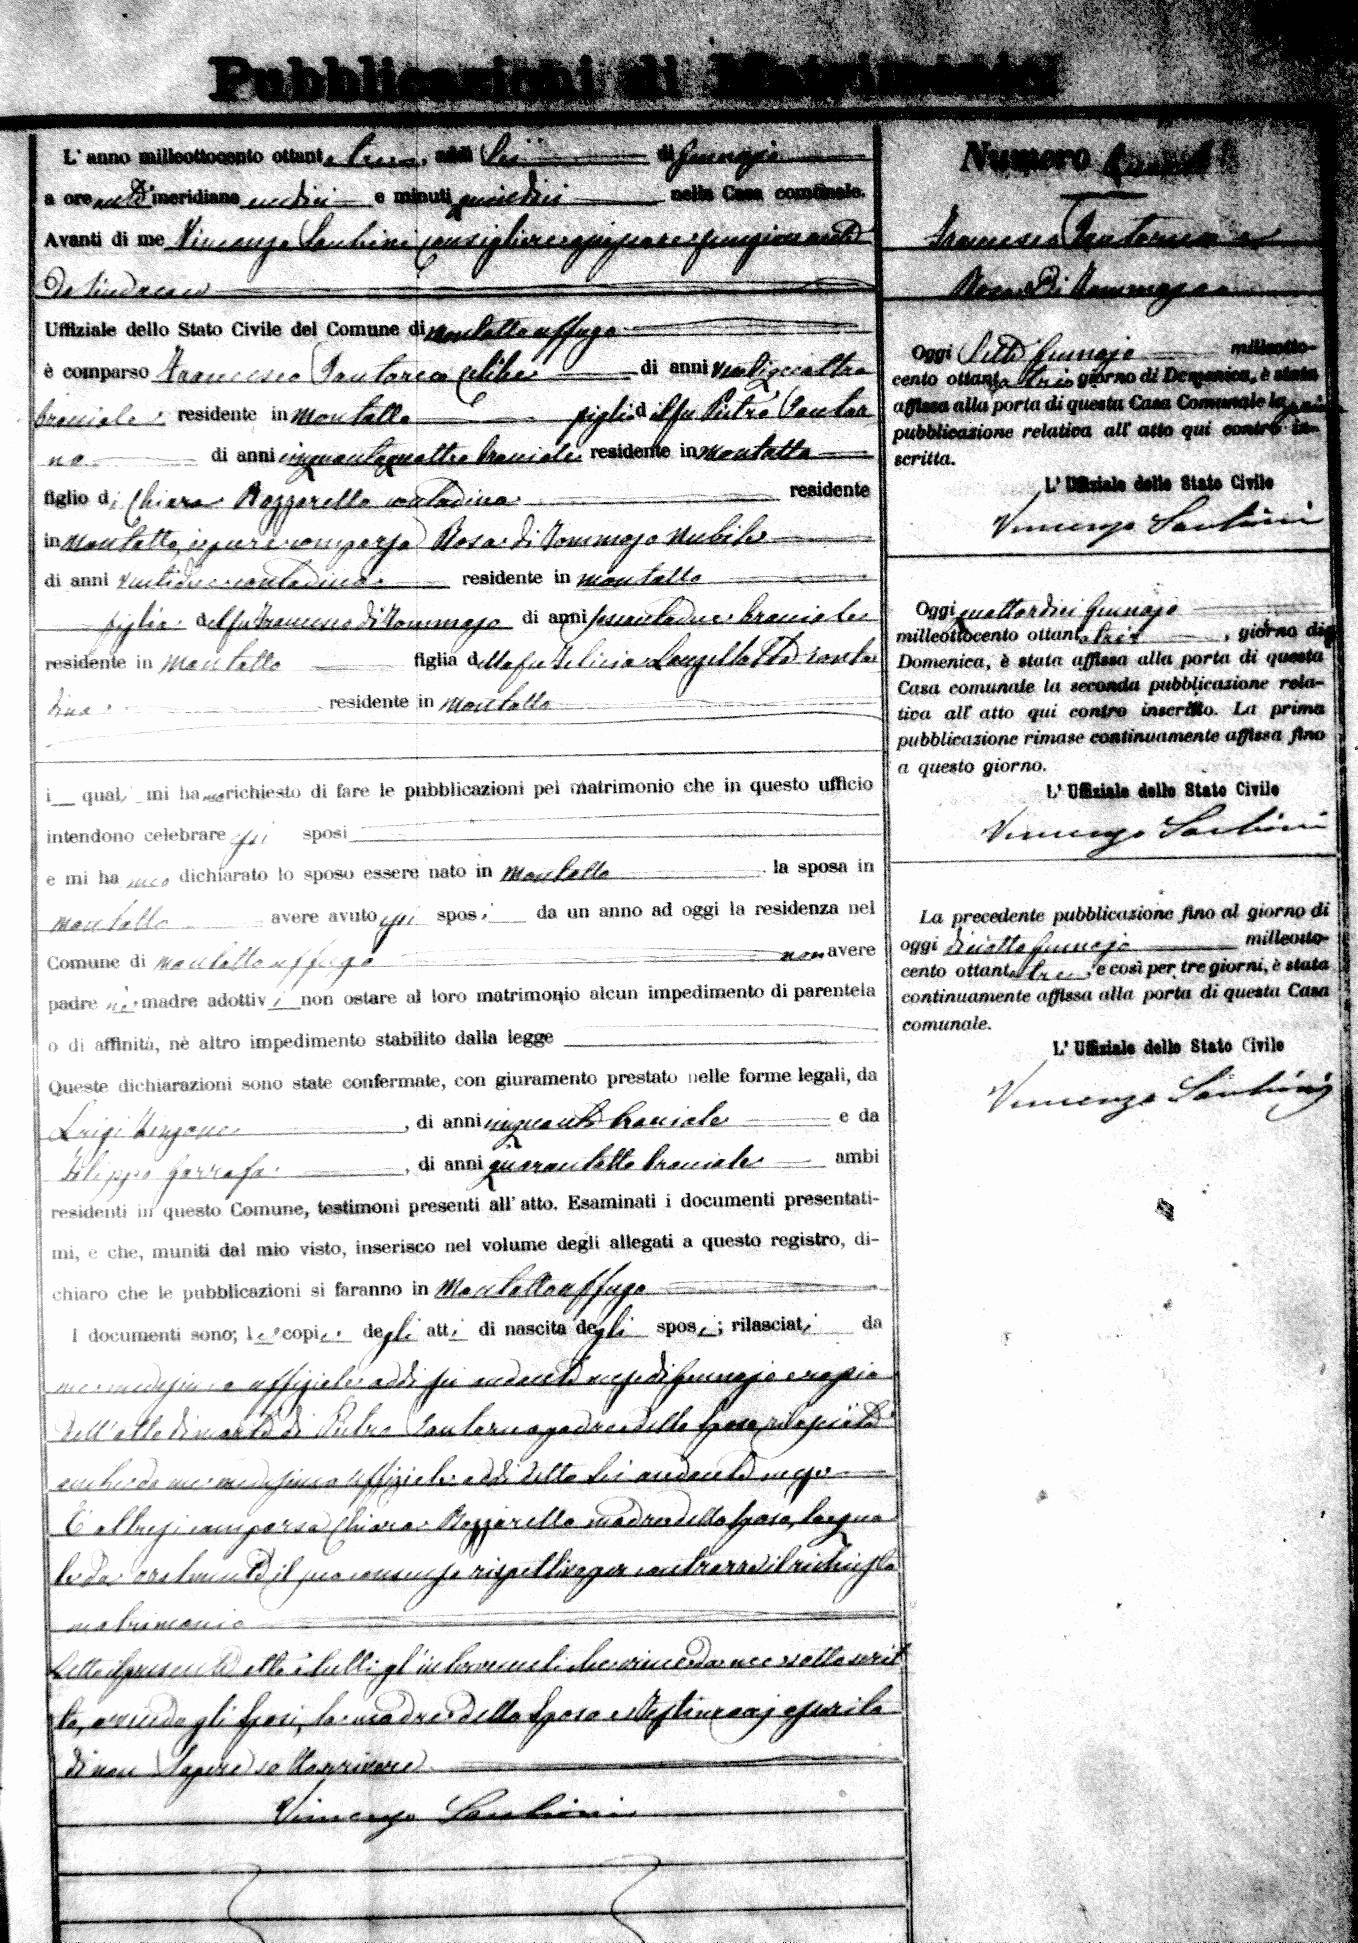 Pubblicazioni di Matrimonio
L'anno milleottocento ottantatre, addì Sei di Gennajo
a ore antimeridiane undici e minuti quindici nella Casa comunale.
Avanti di me Vincenzo Santini Consigliere funzionante
da Sindaco
Uffiziale dello Stato Civile del Comune di Montaltouffugo
è comparso Francesco Celibe di anni ventiquattro
braciale residente in Montalto figlio del fu Pietro
di anni cinquantaquattro braciale residente in Montalto
figlio di Chiara Bozzarello contadina residente
in Montalto, è pure comparsa Rosa di Tommaso Nubile
di anni ventidue contadina residente in Montalto
figlia del fu Francesco di Tommaso di anni sessantadue braciale
residente in Montalto figlia della fu Felicia conta
dina residente in Montalto
i quali mi hanno richiesto di fare le pubblicazioni pel matrimonio che in questo ufficio
intendono celebrare gli sposi
e mi hanno dichiarato lo sposo essere nato in Montalto la sposa in
Montalto avere avuto gli sposi da un anno ad oggi la residenza nel
Comune di Montaltouffugo non avere
padre nè madre adottivi non ostare al loro matrimonio alcun impedimento di parentela
o di affinità, nè altro impedimento stabilito dalla legge
Queste dichiarazioni sono state confermate, con giuramento prestato nelle forme legali, da
Luigi, di anni cinquanta braciale e da
Filippo Garrafa, di anni quarantotto braciale ambi
residenti in questo Comune, testimoni presenti all'atto. Esaminati i documenti presentati-
mi, e che, muniti dal mio visto, inserisco nel volume degli allegati a questo registro, di-
chiaro che le pubblicazioni si faranno in Montaltouffugo
I documenti sono; le copie degli atti di nascita degli sposi; rilasciati da
me medesimo uffiziale addì sei andante mese di Gennajo e copia
dell'atto di morte di Pietro padre dello sposo, rilasciata
anche da me medesimo Uffiziale addì detto sei andante mese
È altresì comparsa Chiara Bozzarello madre dello sposo, la qua
le da oralmente il suo consenso rispettivo per contrarre il richiesto
matrimonio
Letto il presente atto a tutti gl'intervenuti si è da me sottoscrit
to, avendo gli sposi, la madre dello sposo e testimonj asserito
di non sapere sottoscrivere
Vincenzo Santini
Numero
Francesco
Rosa Di Tommaso
Oggi Sette Gennajo milleotto-
cento ottantatrè giorno di Domenica, è stata
affissa alla porta di questa Casa Comunale la prima
pubblicazione relativa all'atto qui contro in-
scritta.
L'Uffiziale dello Stato Civile
Vincenzo Santini
Oggi quattordici Gennajo
milleottocento ottantatrè, giorno di
Domenica, è stata affissa alla porta di questa
Casa comunale la seconda pubblicazione rela-
tiva all'atto qui contro inscritto. La prima
pubblicazione rimase continuamente affissa fino
a questo giorno.
L'Uffiziale dello Stato Civile
Vincenzo Santini
La precedente pubblicazione fino al giorno di
oggi diciotto Gennajo milleotto-
cento ottantatre, e così per tre giorni, è stata
continuamente affissa alla porta di questa Casa
comunale.
L'Uffiziale dello Stato Civile
Vincenzo Santini